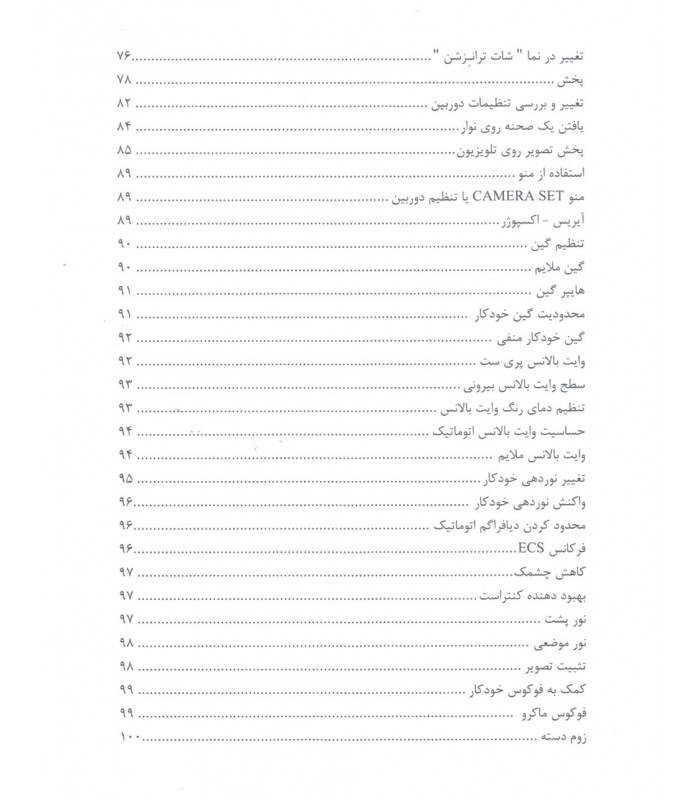 تغییر در نما " شات ترانزشن "...........................................................................۷۶
پخش .........................................................................................................۷۸
تغییر و بررسی تنظیمات دوربین ...........................................................................۸۲
یافتن یک صحنه روی نوار...................................................................................۸۴
پخش تصویر روی تلویزیون.................................................................................۸۵
استفاده از منو ................................................................................................۸۹
منو CAMERA SET یا تنظیم دوربین ................................................................۸۹
آیریس - اکسپوژر ............................................................................................۸۹
تنظیم گین ...................................................................................................۹۰
گین ملایم ....................................................................................................۹۰
هایپر گین ....................................................................................................۹۱
محدودیت گین خودکار ....................................................................................۹۱
گین خودکار منفی ..........................................................................................۹۲
وایت بالانس پری ست ......................................................................................۹۲
سطح وایت بالانس بیرونی ..................................................................................۹۳
تنظیم دمای رنگ وایت بالانس ............................................................................۹۳
حساسیت وایت بالانس اتوماتیک ..........................................................................۹۴
وایت بالانس ملایم ..........................................................................................۹۴
تغییر نوردهی خودکار .......................................................................................۹۵
واکنش نوردهی خودکار ....................................................................................۹۶
محدود کردن دیافراگم اتوماتیک ..........................................................................۹۶
فرکانس ECS................................................................................................۹۶
کاهش چشمک..............................................................................................۹۷
بهبود دهنده کنتراست ......................................................................................۹۷
نور پشت .....................................................................................................۹۷
نور موضعی ...................................................................................................۹۸
تثبیت تصویر .................................................................................................۹۸
کمک به فوکوس خودکار ...................................................................................۹۹
فوکوس ماکرو ...............................................................................................۹۹
زوم دسته ...................................................................................................۱۰۰